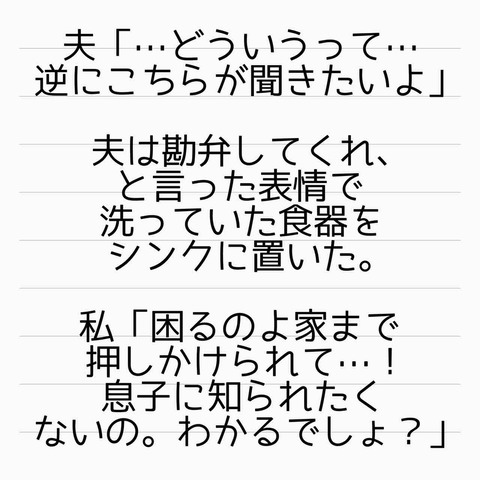 夫「…どういうって…
逆にこちらが聞きたいよ」
夫は勘弁してくれ、
と言った表情で
洗っていた食器を
シンクに置いた。
私「困るのよ家まで
押しかけられて…！
息子に知られたく
ないの。わかるでしょ？」